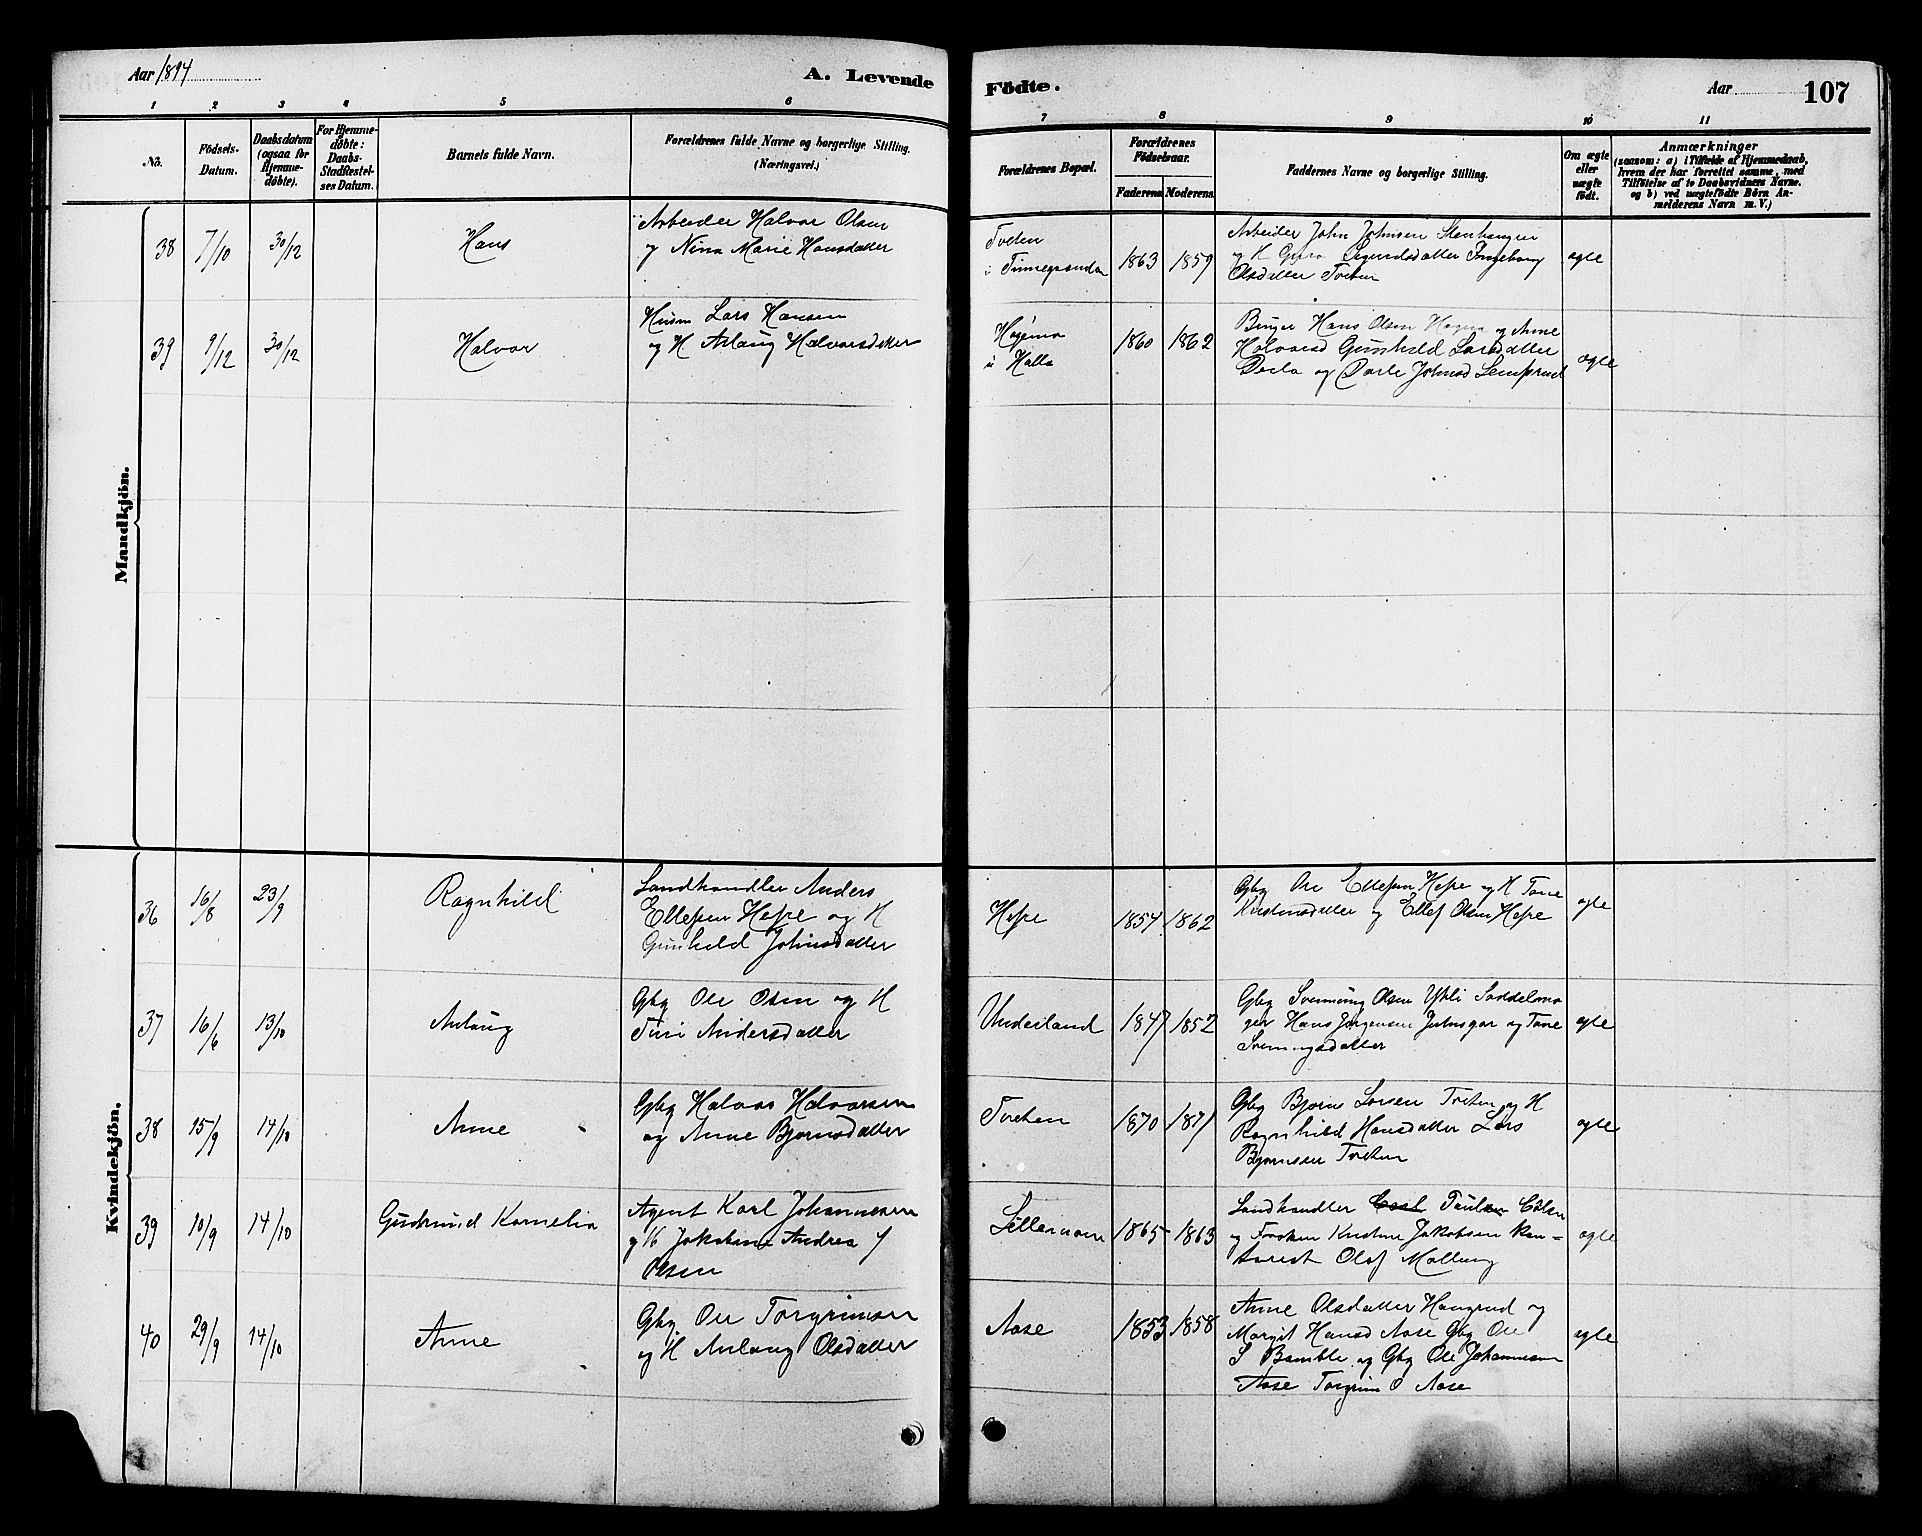 Aar 1894
A. Levende
Födte.
Aar
107
1 2 3 4 5 6 7 8 9 10 11
No.
Födsels-
Datum.
Daabsdatum
(ogsaa for
Hjemme-
döbte).
For Hjemme-
döbte:
Daabs-
Stadfæstel-
ses Datum.
Barnets fulde Navn.
Forældrenes fulde Navne og borgerlige Stilling.
(Næringsvei.)
Forældrenes Bopæl.
Forældrenes
Födselsaar.
Faderens. Moderens.
Faddernes Navne og borgerlige Stilling.
Om ægte
eller
uægte
födt.
Anmærkninger
(saasom: a) i Tilfælde af Hjemmedaab,
hvem der har forrettet samme, med
Tilföielse af to Daabsvidners Navne.
og b) ved uægtefödte Börn An-
melderens Navn m. V.)
Mandkjön.
38 7/10 30/12 Hans
Arbeider Halvor Olsen
og Nina Marie Hansdatter
Tveten
i
1863 1859
Arbeider John Johnsen
og H Gyro Sigurdsdatter Ingeborg
Olsdatter Tveten
ægte
39 9/12 30/12 Halvor
Husm Lars Hansen
og H Aslaug Halvorsdatter
i Halla
1860 1862
Hans Olsen og Anne
Halvorsd Gunhild Larsdatter
og Johnsd
ægte
Kvindekjön.
36 16/8 23/9 Ragnhild
Landhandler Anders
Ellefsen Hesje og H
Gunhild Johnsdatter
Hesje
1854 1862
Gbg Ole Ellefsen Hesje og H Tone
Kristensdatter og Ellef Olsen Hesje
ægte
37 16/6 13/10 Aslaug
Gbg Ole Olsen og H
Turi Andersdatter
Underland
1847 1852
Gbg Svennung Olsen Ytli Saddelma
ger Hans Jørgensen og Tone
Svennungsdatter
ægte
38 15/9 14/10 Anne
Gbg Halvor Halvorsen
og Anne Bjørnsdatter
Tveten
1870 1871
Gbg Bjørn Larsen Tveten og H
Ragnhild Hansdatter Lars
Bjørnsen Tveten
ægte
39 10/9 14/10 Gudrund Kornelia
Agent Karl Johannesen
og H Jakobine Andrea f
Olsen
1865 1863
Landhandler
og Frøken Kristine Jakobsen Kon-
torist Olaf Malling
ægte
40 29/9 14/10 Anne
Gbg Ole Torgrimsen
og H Aslaug Olsdatter
Aase
1853 1858
Anne Olsdatter Haugrud og
Margit Hansd Aase Gbg Ole
S Bamble og Gbg Ole Johannesen
Aase Torgrim O Aase
ægte